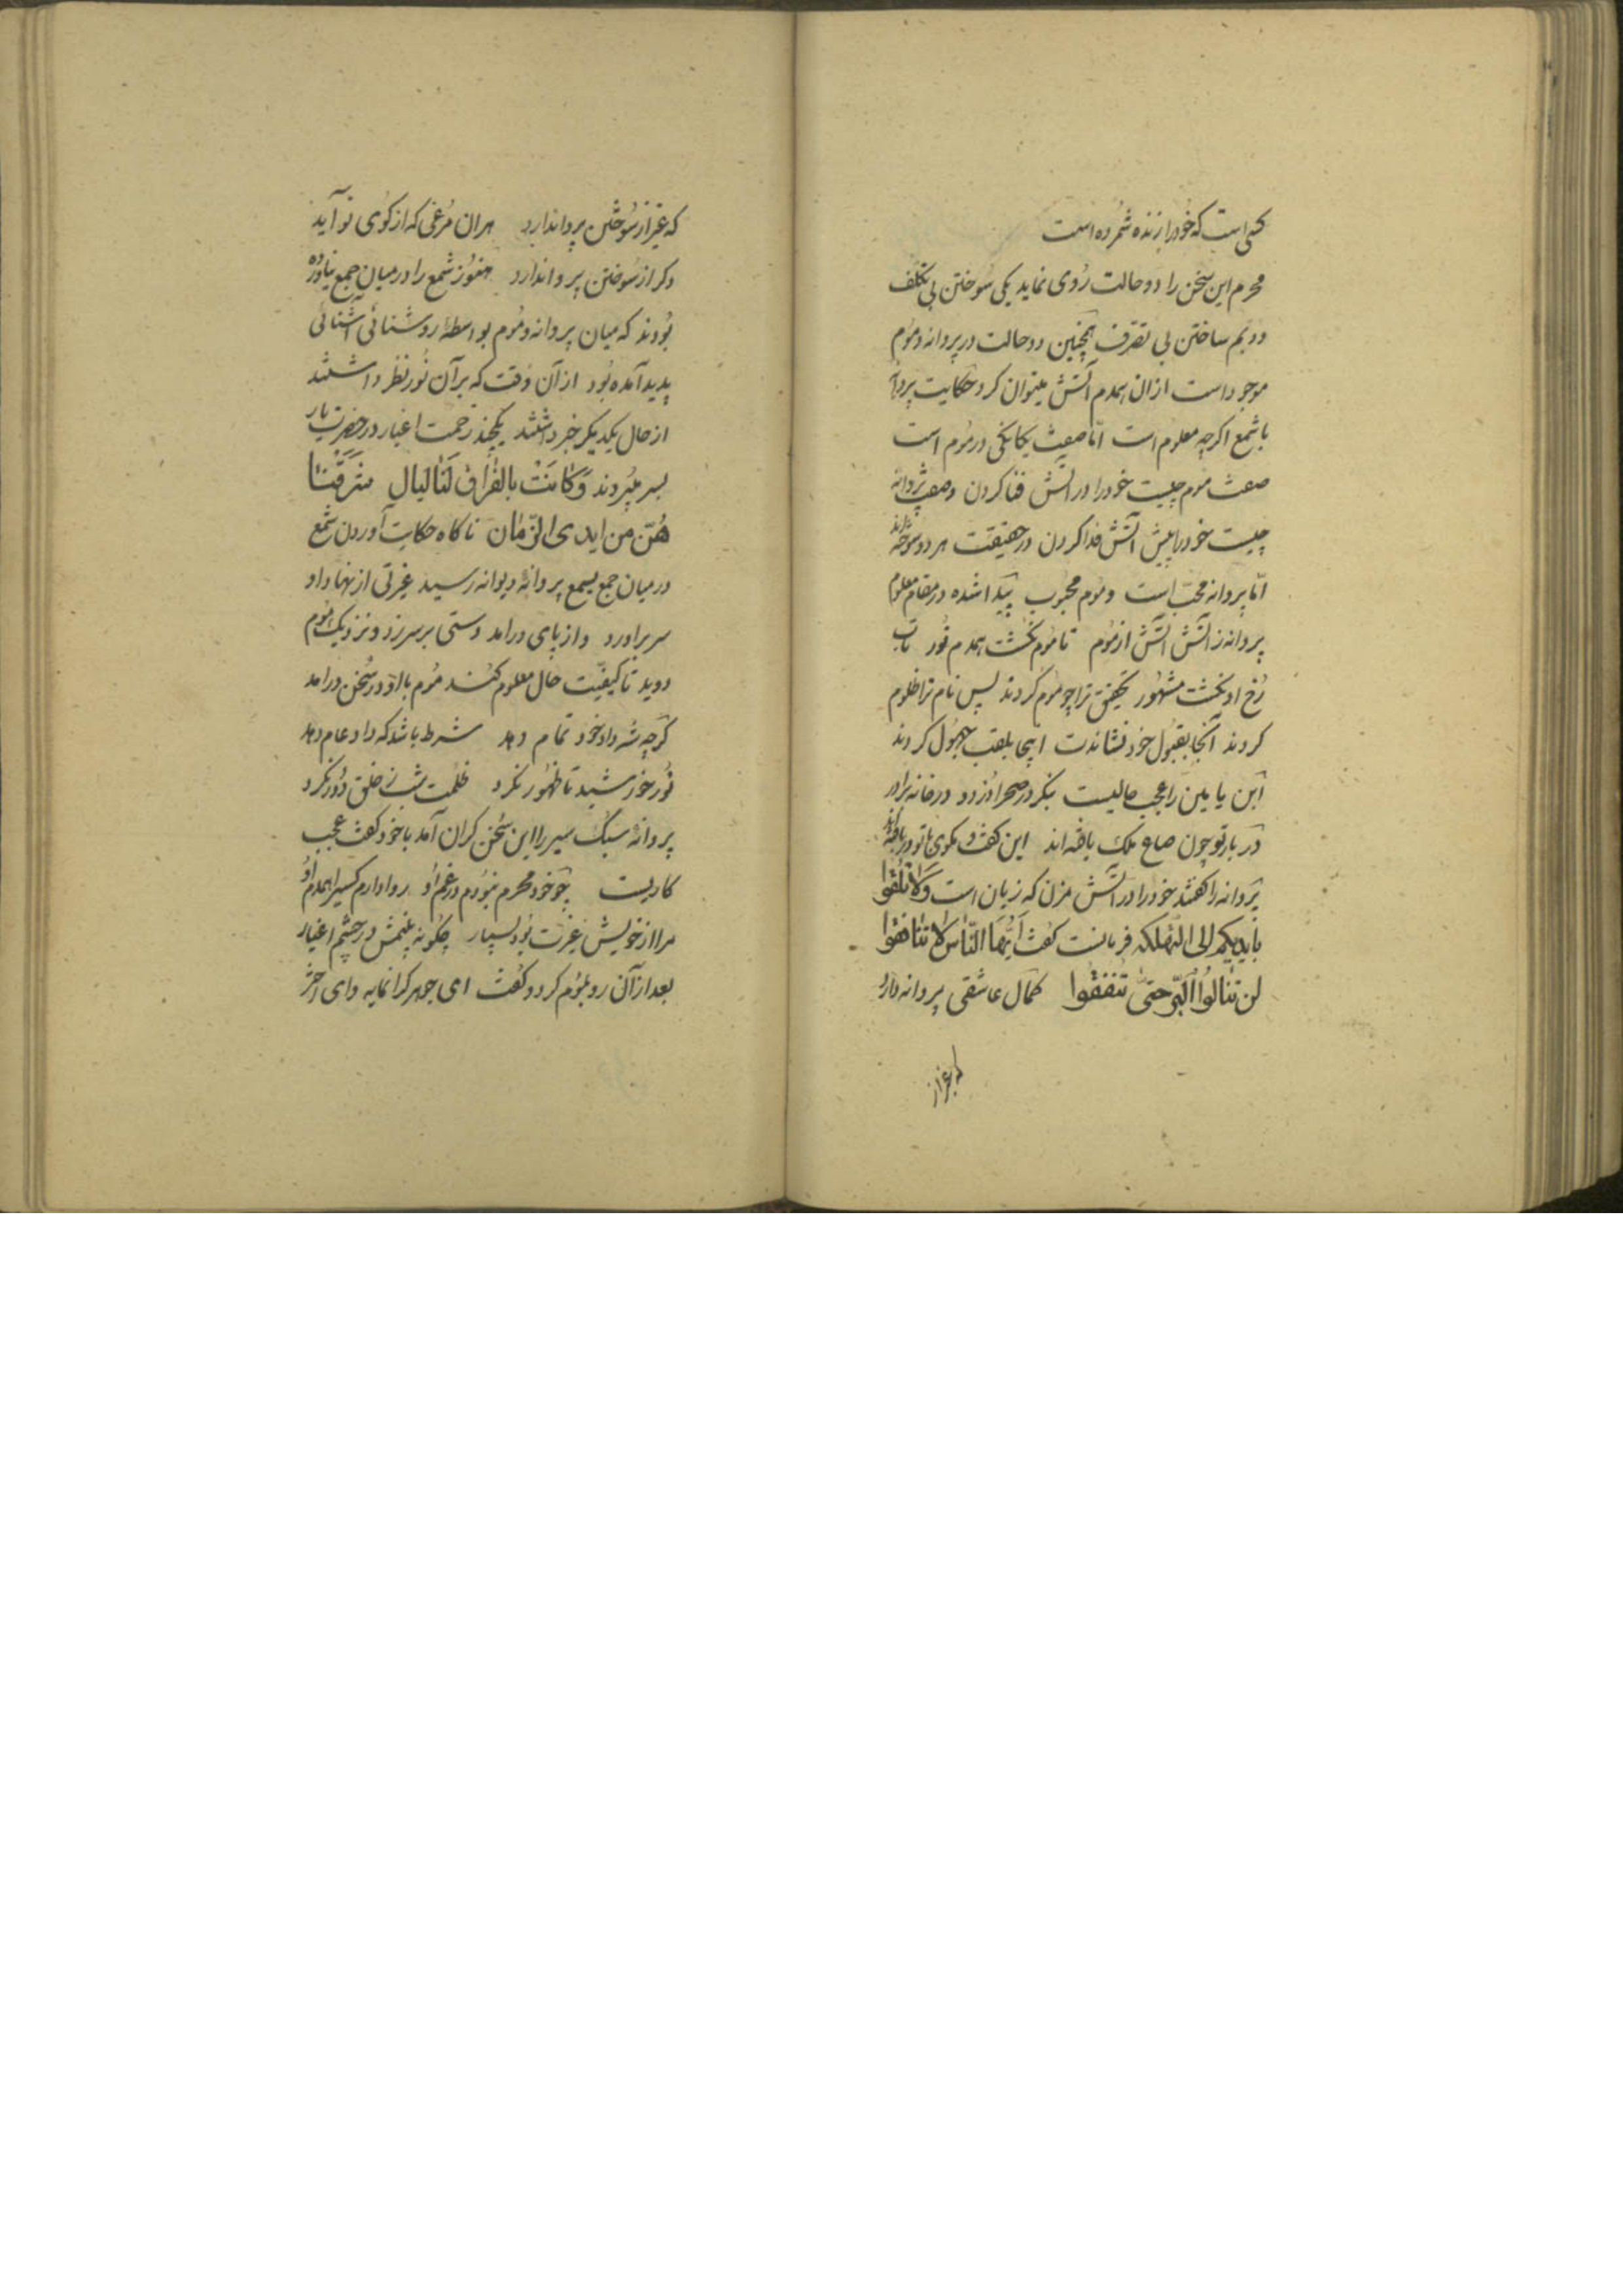 کسی است که خود را زنده شمرده است
محرم این سخن را دو حالت روی نماید یکی سوختن بی تکلف
دویم ساختن بی تصرف همچنین دو حالت در پروانه و موم
موجود است ازان همدم آتش میتوان کرد حکایت پروانه
با شمع اکرچه معلوم است امّا صفت یکانکی در موم است
صفت موم چیست خود را در آتش فنا کردن وصف پروانه
چیست خود را پیش آتش فدا کردن در حقیقت هر دو سوخته‌اند
امّا پروانه محبّ است و موم محبوب پیدا شده در مقام معلوم
پروانه ز آتش آتش از موم تا موم نکشت همدم نور تاب
رخ او نکشت مشهور تحقیق ترا چو موم کردند پس نام ترا ظلوم
کردند آنجا بقبول خود نشاندت اینجا بلقب جهول کردند
ابن یامین را عجب حالیست بنکر در صحرا دزد و در خانه برادر
در بار تو چون صاع ملک یافته‌اند این کفت و مکوی با تو دریافته‌اند
پروانه را کفتند خود را در آتش مزن که زیان است وَلَا تُلْقُوا
بِأَيْدِيكُم إلى التّهلكة فریانست کفت أَيُّهَا النّاس لا تنافقوا
لن تنالُوا البِرّ حتى تُنفقُوا کمال عاشقی پروانه دارد
که غیر از سوختن پروا ندارد هران مرغی که از کوی تو آید
دکر از سوختن پروا ندارد هنوز شمع را در میان جمع نیاورده
بودند که میان پروانه و موم بواسطهٔ روشنائی آشنائی
پدید آمده بود از آن وقت که بر آن نور نظر داشتند
از حال یکدیکر خبر داشتند یکچند زحمت اغیار در حضرت یار
بسر میبردند وَكانَت بالفراق لَنا لَيال سَرَقنا
هُنّ من ايدى الزّمان ناکاه حکایت آوردن شمع
در میان جمع بسمع پروانهٔ دیوانه رسید غیرتی از نهاد او
سر براورد و از پای درامد دستی بر سر زد و نزدیک موم
دوید تا کیفیّت حال معلوم کند موم با او در سخن درامد
کرچه شه داد خود تمام دهد شرط باشد که داد عام دهد
نور خورشید تا ظهور نکرد ظلمت شب ز خلق دور نکرد
پروانهٔ سبک سیر را این سخن کران آمد با خود کفت عجب
کاریست چو خود محرم نبودم در غم او روا دارم کسیرا همدم او
مرا از خویش غیرت بود بسیار چکونه بینمش در چشم اغیار
بعد از آن رو بموم کرد و کفت ای جوهر کرانمایه و ای اختر